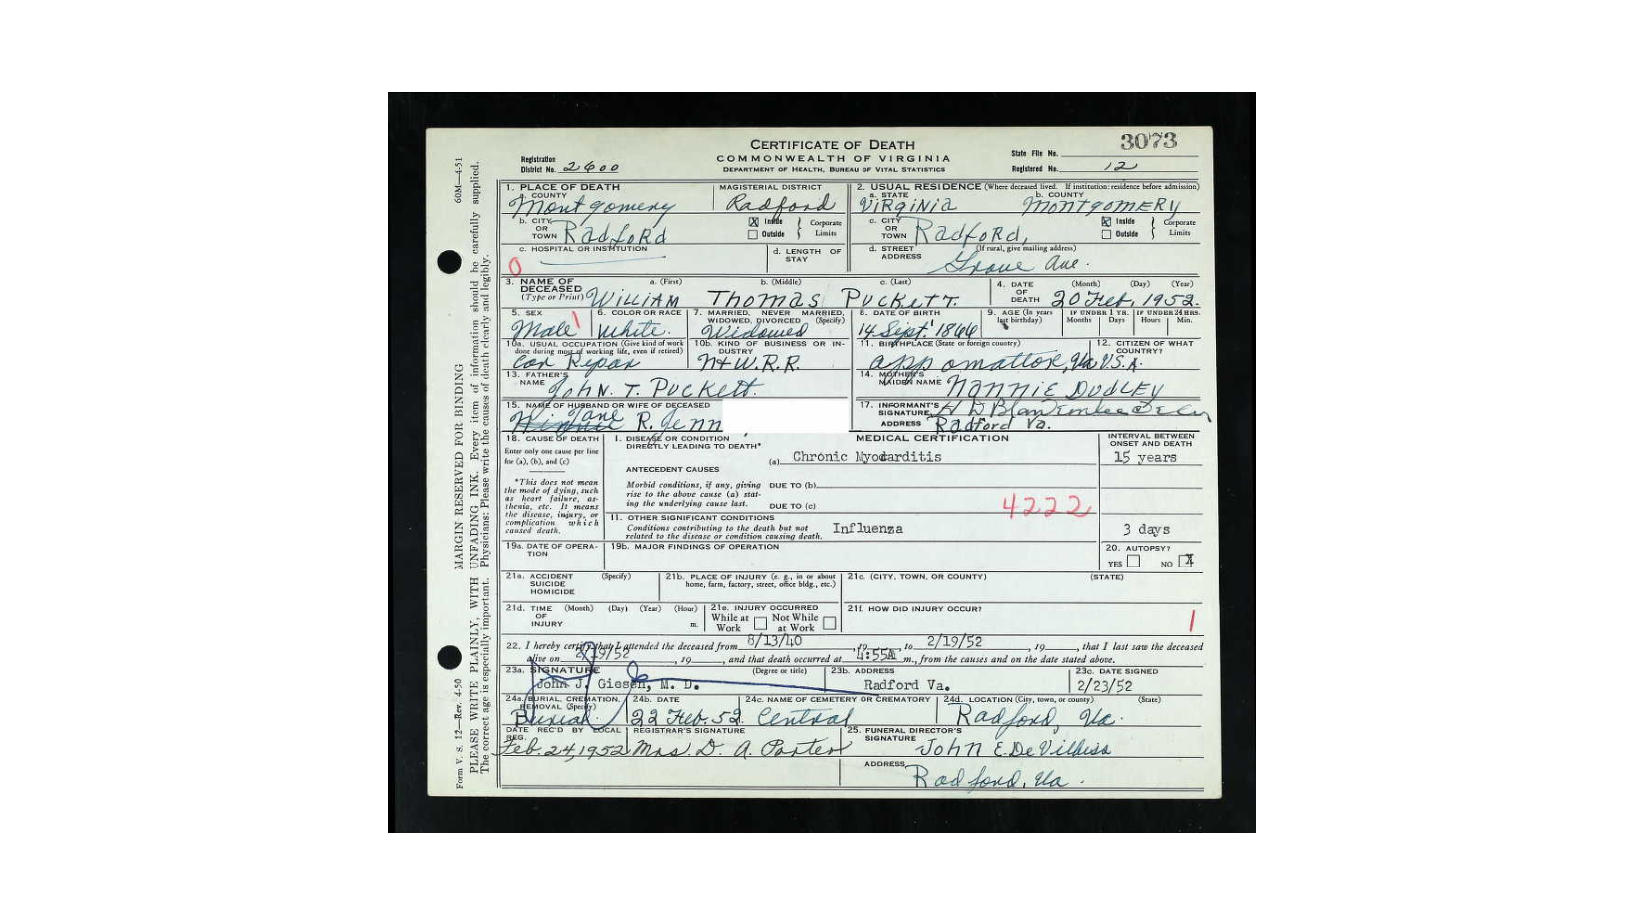 3073
CERTIFICATE OF DEATH
COMMONWEALTH OF VIRGINIA
DEPARTMENT OF HEALTH, BUREAU OF VITAL STATISTICS
Registration District No. 2600
State File No.
Registered No. 12
1. PLACE OF DEATH
a. COUNTY Montgomery
MAGISTERIAL DISTRICT Radford
2. USUAL RESIDENCE (Where deceased lived. If institution: residence before admission)
a. STATE VIRGINIA b. COUNTY MONTGOMERY
b. CITY OR TOWN Radford X Inside Outside Corporate Limits
c. CITY OR TOWN Radford, X Inside Outside Corporate Limits
c. HOSPITAL OR INSTITUTION
d. LENGTH OF STAY
d. STREET ADDRESS (If rural, give mailing address) Grove Ave.
0
3. NAME OF DECEASED (Type or Print) a. (First) b. (Middle) c. (Last)
WILLIAM THOMAS PUCKETT.
4. DATE OF DEATH (Month) (Day) (Year)
20 Feb, 1952.
5. SEX Male 1
6. COLOR OR RACE White.
7. MARRIED, NEVER MARRIED, WIDOWED, DIVORCED (Specify) Widowed
8. DATE OF BIRTH 14 Sept. 1866
9. AGE (In years last birthday) IF UNDER 1 YR. Months Days IF UNDER 24 HRS. Hours Min.
10a. USUAL OCCUPATION (Give kind of work done during most of working life, even if retired) Car Repair
10b. KIND OF BUSINESS OR INDUSTRY N+W.R.R.
11. BIRTHPLACE (State or foreign country) Appomattox, Va
12. CITIZEN OF WHAT COUNTRY? U.S.A.
13. FATHER'S NAME John. T. Puckett.
14. MOTHER'S MAIDEN NAME NANNIE DUDLEY
15. NAME OF HUSBAND OR WIFE OF DECEASED
Jane R. Jenn
17. INFORMANT'S SIGNATURE H D
ADDRESS Radford Va.
18. CAUSE OF DEATH
Enter only one cause per line for (a), (b), and (c)
*This does not mean the mode of dying, such as heart failure, asthenia, etc. It means the disease, injury, or complication which caused death.
MEDICAL CERTIFICATION
INTERVAL BETWEEN ONSET AND DEATH
I. DISEASE OR CONDITION DIRECTLY LEADING TO DEATH*
(a) Chronic Myocarditis 15 years
ANTECEDENT CAUSES
Morbid conditions, if any, giving rise to the above cause (a) stating the underlying cause last.
DUE TO (b)
DUE TO (c)
4222
II. OTHER SIGNIFICANT CONDITIONS
Conditions contributing to the death but not related to the disease or condition causing death.
Influenza 3 days
19a. DATE OF OPERATION
19b. MAJOR FINDINGS OF OPERATION
20. AUTOPSY? YES NO X
21a. ACCIDENT SUICIDE HOMICIDE (Specify)
21b. PLACE OF INJURY (e. g., in or about home, farm, factory, street, office bldg., etc.)
21c. (CITY, TOWN, OR COUNTY) (STATE)
21d. TIME OF INJURY (Month) (Day) (Year) (Hour) m.
21e. INJURY OCCURRED While at Work Not While at Work
21f. HOW DID INJURY OCCUR?
1
22. I hereby certify that I attended the deceased from 8/13/40, 19, to 2/19/52, 19, that I last saw the deceased
alive on 2/19/52, 19, and that death occurred at 4:55A m., from the causes and on the date stated above.
23a. SIGNATURE (Degree or title) John J. Giesen, M. D.
23b. ADDRESS Radford Va.
23c. DATE SIGNED 2/23/52
24a. BURIAL, CREMATION, REMOVAL (Specify) Burial.
24b. DATE 22 Feb. 52.
24c. NAME OF CEMETERY OR CREMATORY Central
24d. LOCATION (City, town, or county) (State) Radford, Va.
DATE REC'D BY LOCAL REG. Feb. 24, 1952
REGISTRAR'S SIGNATURE Mrs. D. A. Porter
25. FUNERAL DIRECTOR'S SIGNATURE John E. DeVilbiss
ADDRESS Radford, Va.
Form V. S. 12—Rev. 4-50 MARGIN RESERVED FOR BINDING 60M—4-51
PLEASE WRITE PLAINLY, WITH UNFADING INK. Every item of information should be carefully supplied.
The correct age is especially important. Physicians: Please write the causes of death clearly and legibly.